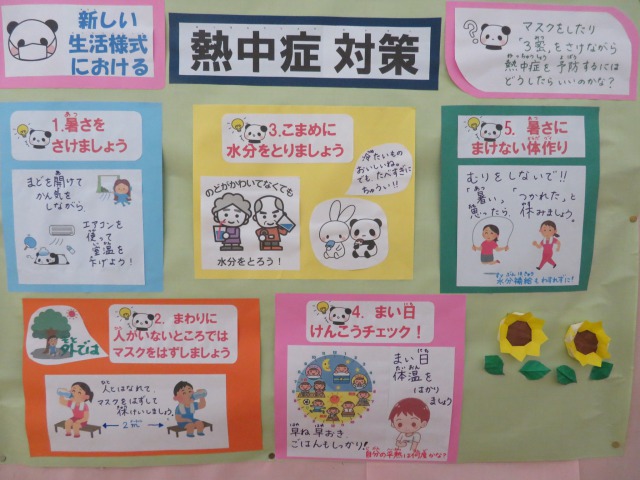 新しい
生活様式
における
熱中症 対策
？
マスクをしたり
「3密」をさけながら
熱中症を予防するには
どうしたらいいのかな？
1.暑さを
さけましょう
まどを開けて
かん気を
しながら
エアコンを
使って
室温を
下げよう！
3.こまめに
水分をとりましょう
冷たいもの
おいしいね。
でも、たべすぎに
ちゅうい!!
のどがかわいてなくても
水分をとろう！
5. 暑さに
まけない体作り
むりをしないで!!
「暑い」「つかれた」と
思ったら休みましょう。
水分補給もわすれずに！
外では
2. まわりに
人がいないところでは
マスクをはずしましょう
人とはなれて、
マスクをはずして
休けいしましょう。
2m
4. まい日
けんこうチェック！
まい日
体温を
はかり
ましょう
早ね 早おき
ごはんもしっかり！
自分の平熱は何度かな？